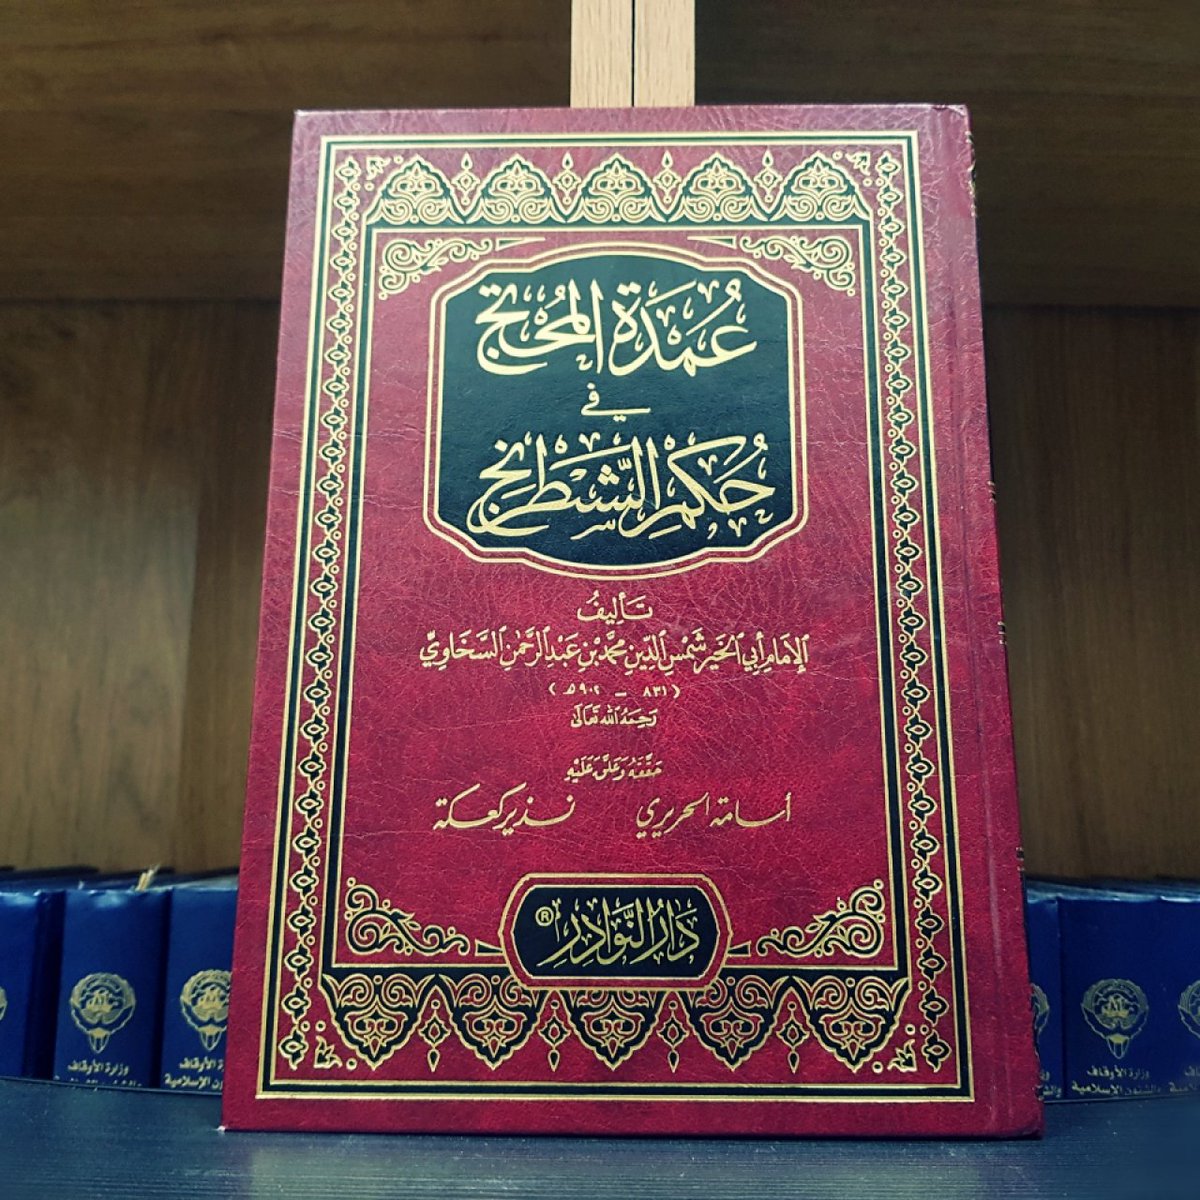 عُمْدَةُ المُحْتَجِّ
في
حُكْمِ الشَّطْرَنْجِ
تَأليفُ
الإمَامِ أبي الخَيْرِ شَمْسِ الدِّينِ محمَّدِ بْنِ عَبْدِ الرَّحْمٰنِ السَّخَاوِيِّ
(٨٣١ - ٩٠٢ هـ)
رَحِمَهُ الله تَعَالَىٰ
حَقَّقَهُ وَعَلَّقَ عَلَيْهِ
أسامة الحريري نذير كعكة
دَارُ النَّوَادِرِ ®
وزارة الأوقاف
ون الإسلامية
وزارة الأوقاف
والشئون الإسلامية